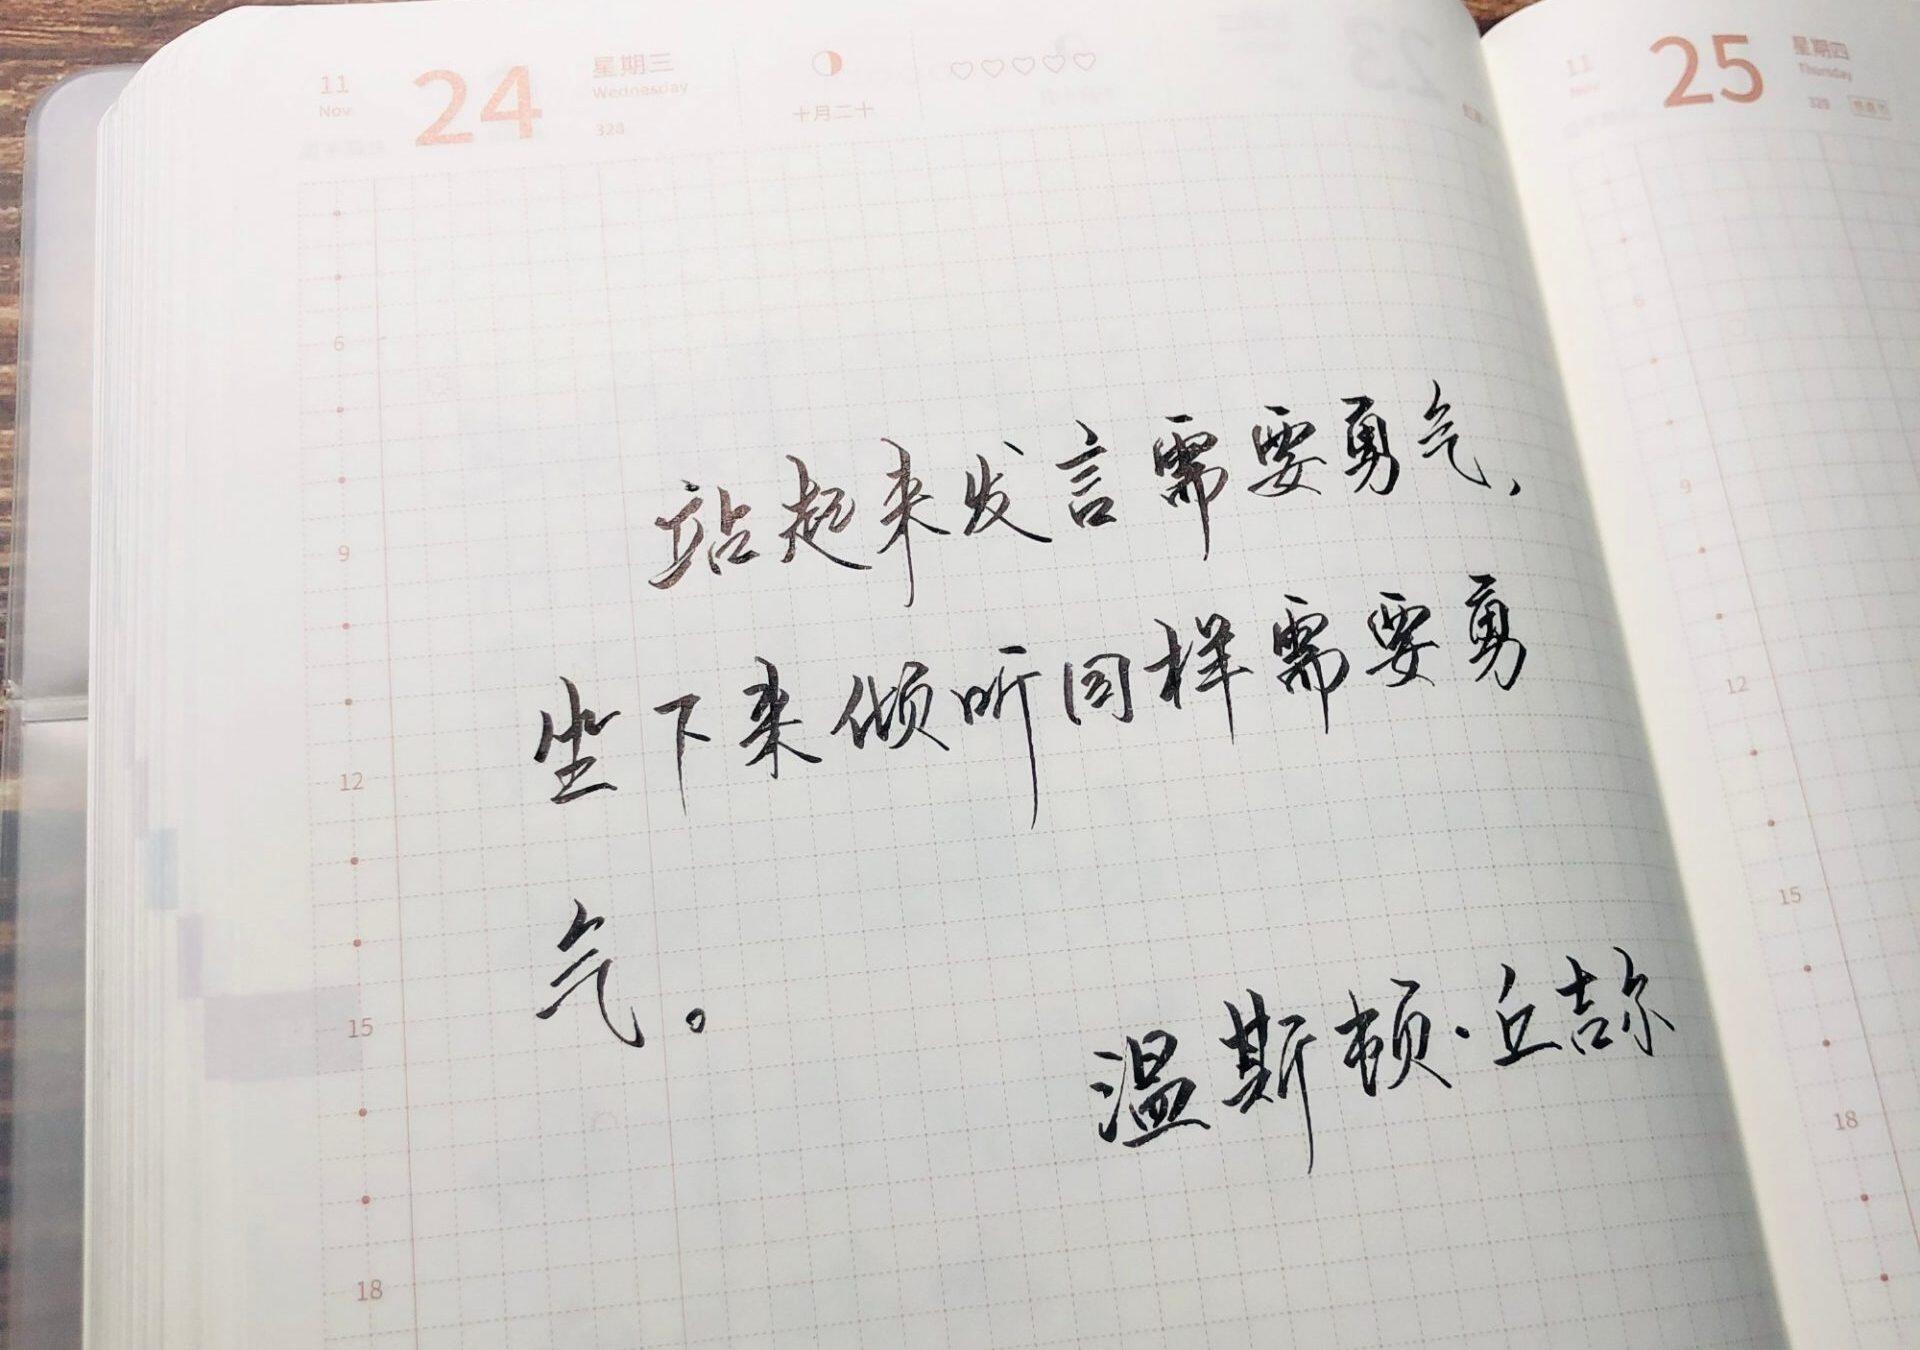 11
Nov
24
星期三
Wednesday
328
十月二十
站起来发言需要勇气,
坐下来倾听同样需要勇
气。
温斯顿·丘吉尔
6
9
12
15
18
11
25
星期四
Thursday
329
6
9
12
15
18